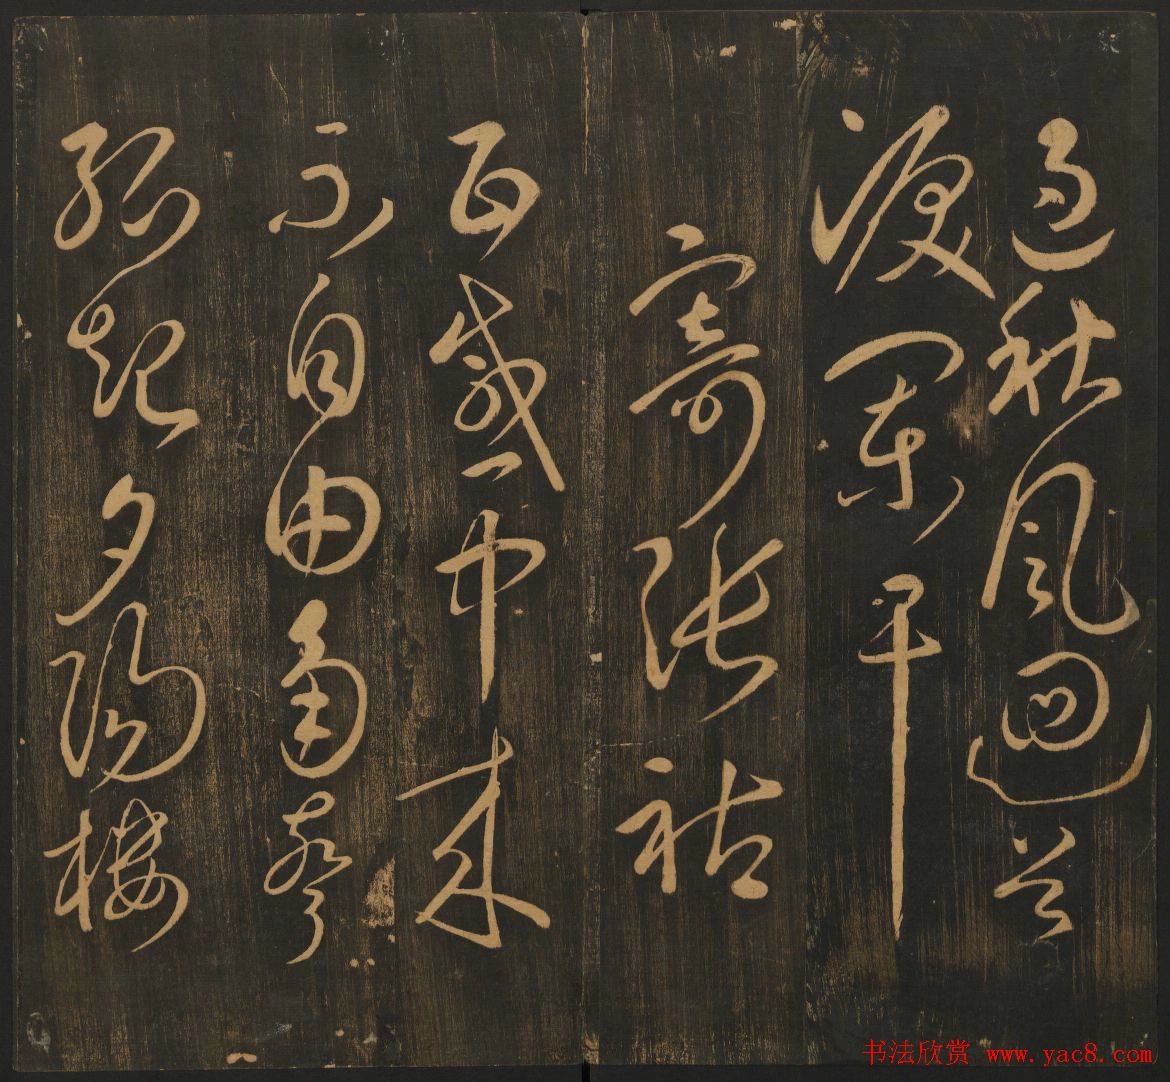 過秋風迴首
淚闌干
寄張祜
百感中来
不自由角聲
孤起夕陽樓
书法欣赏 www.yac8.com